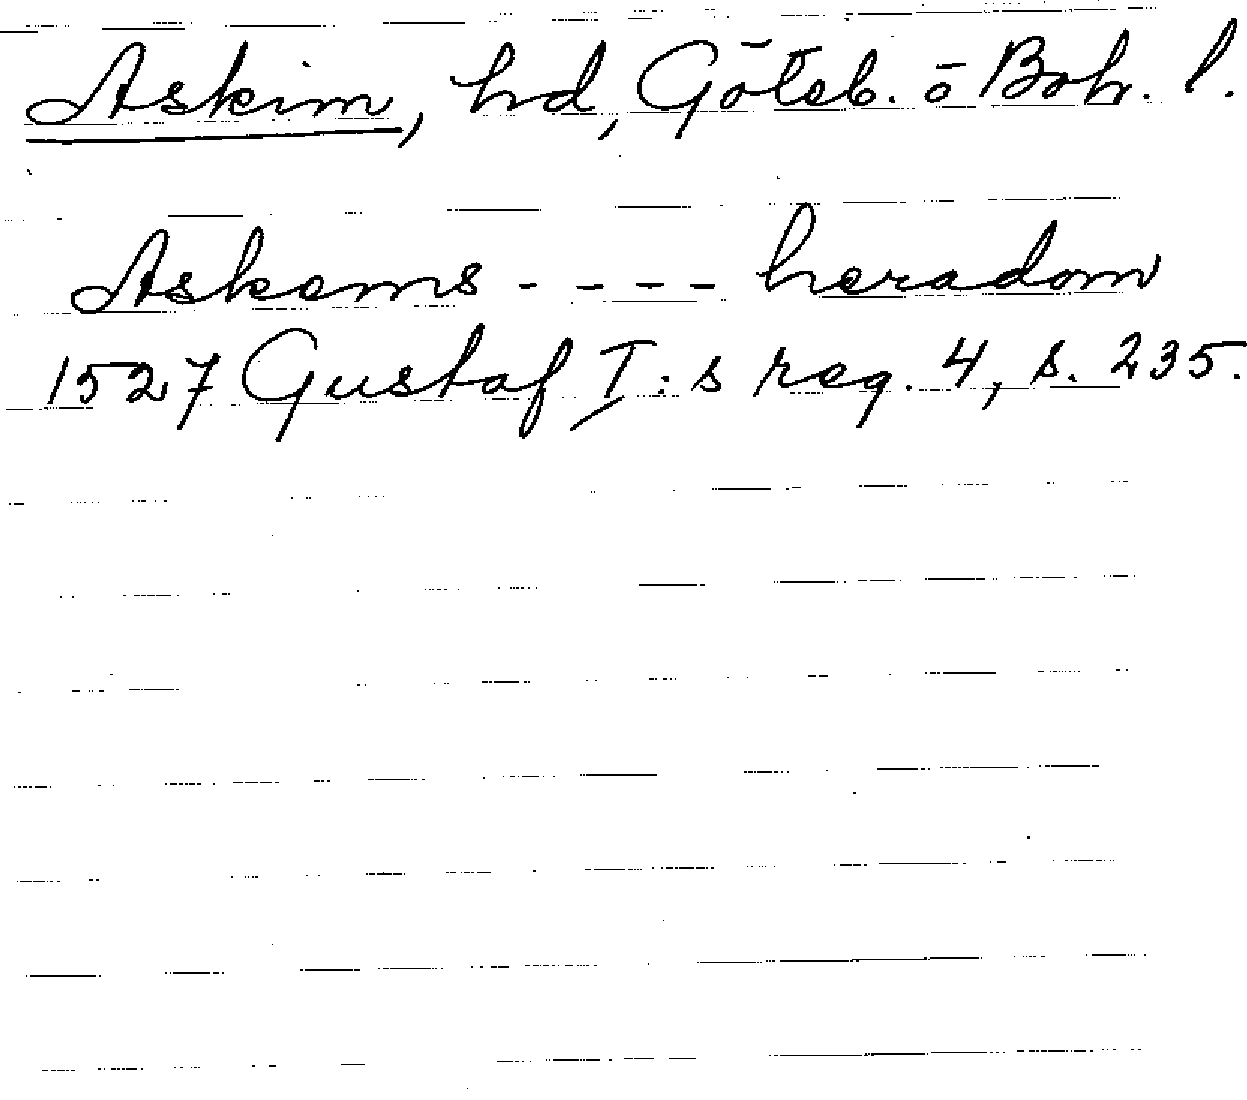 Askim, hd, Göteb. o Boh. l.
Askems - - - - heradom
1527 Gustaf I:s reg. 4, s. 235.